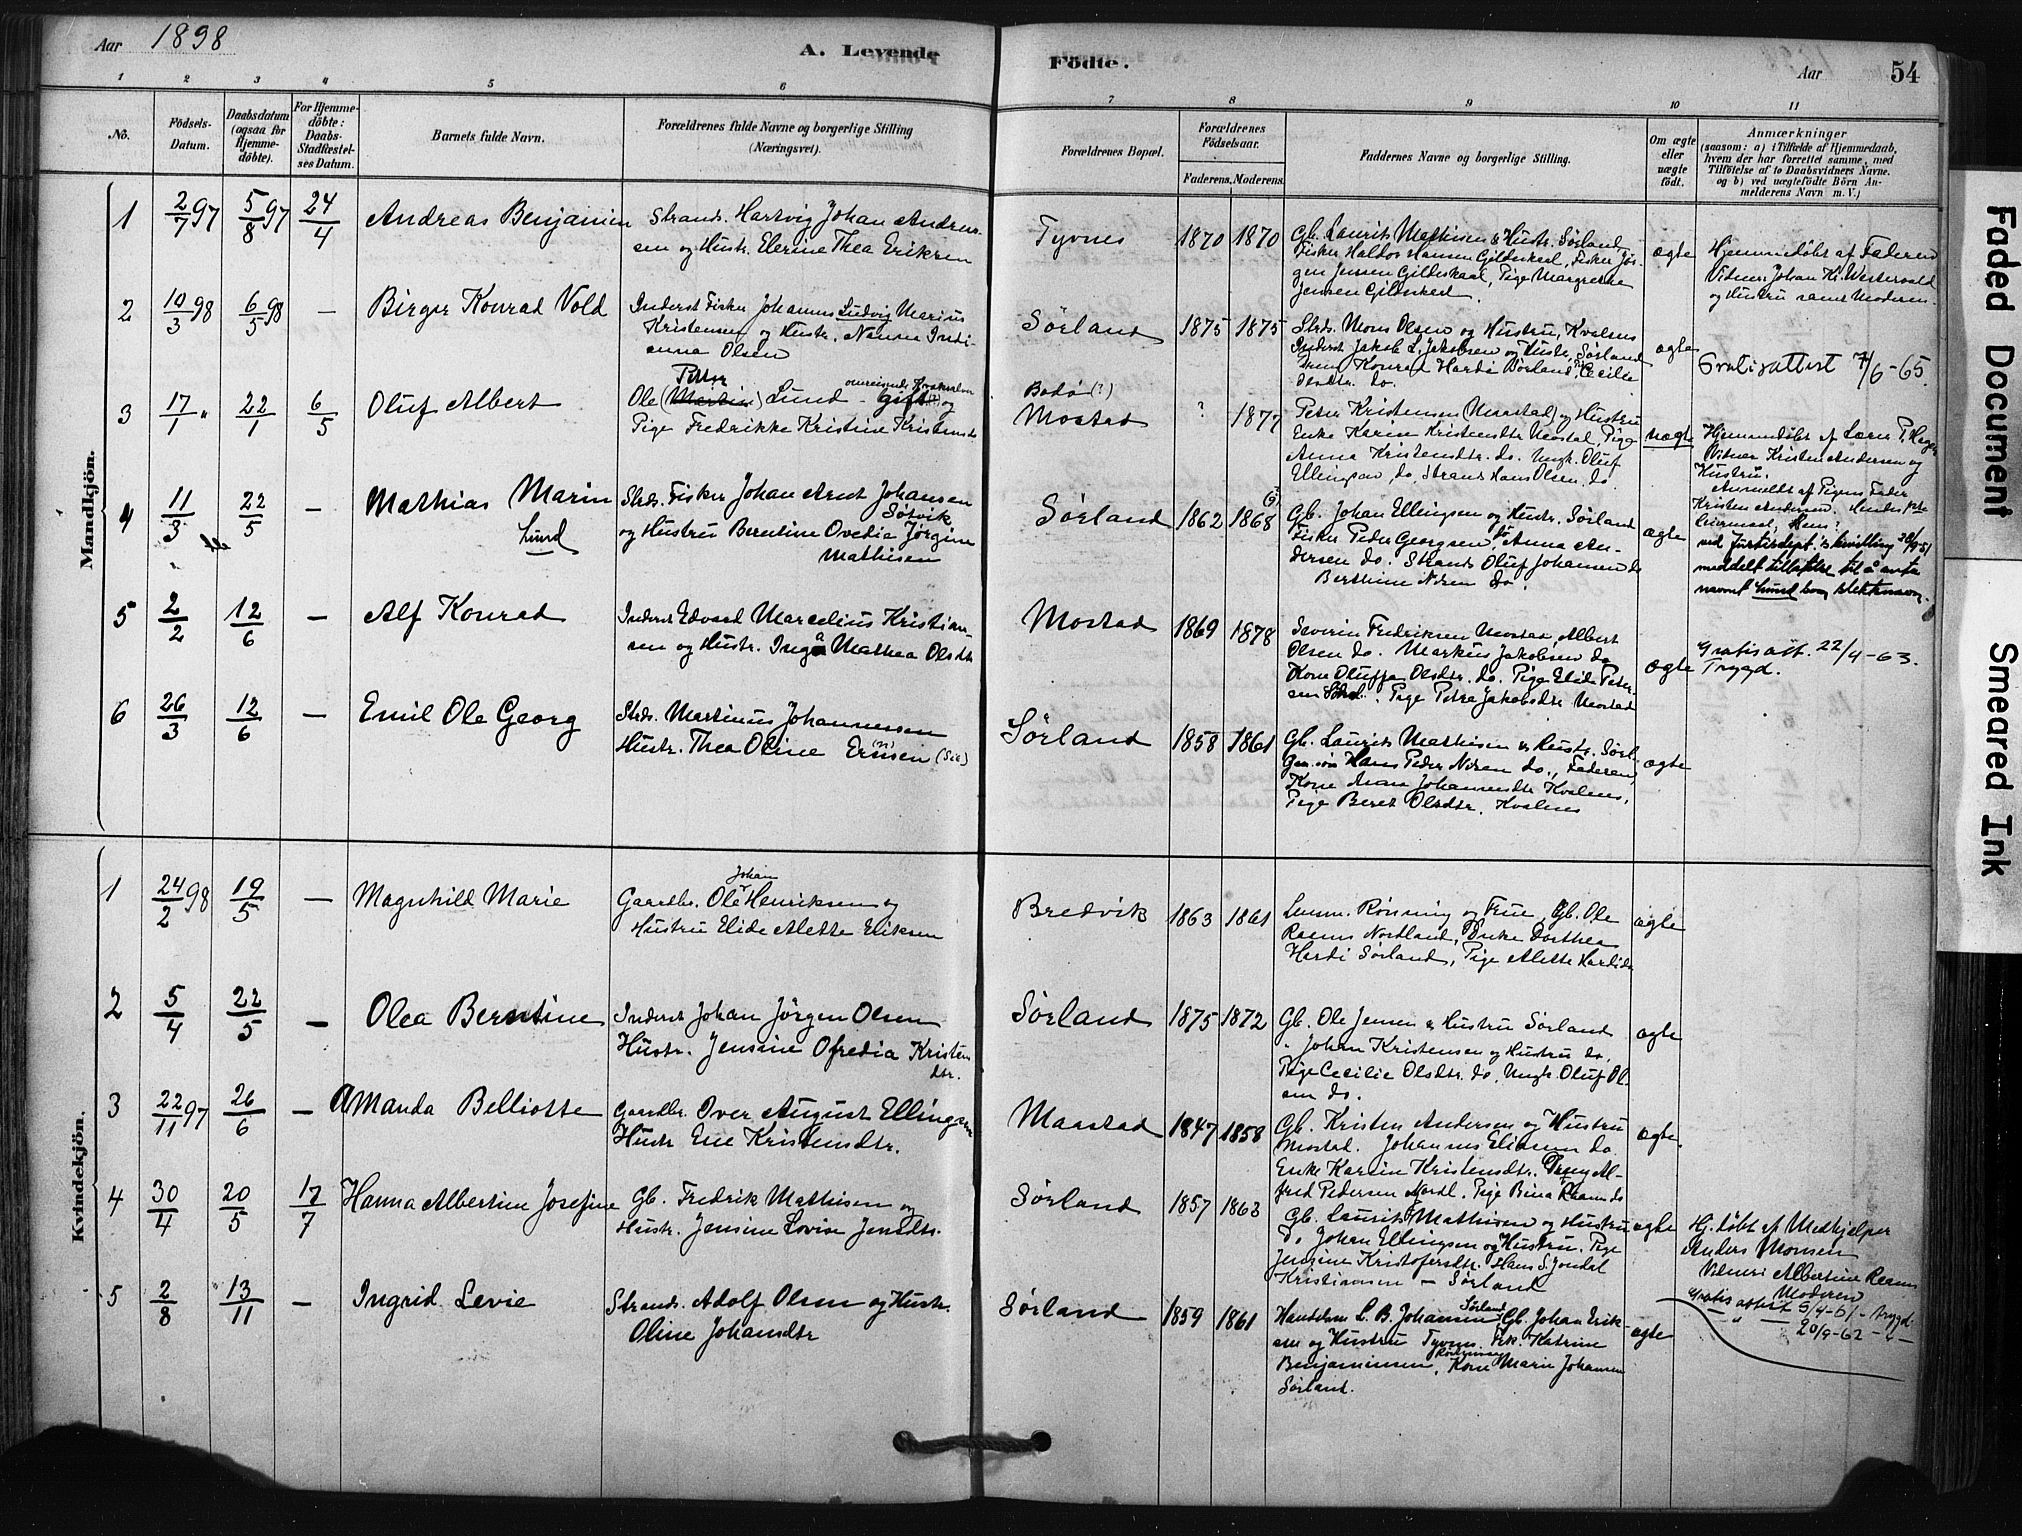 Aar 1898
A. Levende
Födte.
Aar
54
1 2 3 4 5 6 7 8 9 10 11
No.
Födsels-
Datum.
Daabsdatum
(ogsaa for
Hjemme-
döbte).
For Hjemme-
döbte:
Daabs-
Stadfæstel-
ses Datum.
Barnets fulde Navn.
Forældrenes fulde Navne og borgerlige Stilling
(Næringsvei).
Forældrenes Bopæl.
Forældrenes
Födselsaar.
Faderens. Moderens.
Faddernes Navne og borgerlige Stilling.
Om ægte
eller
uægte
födt.
Anmærkninger
(saasom: a) i Tilfælde af Hjemmedaab,
hvem der har forrettet samme, med
Tilföielse af to Daabsvidners Navne.
og b) ved uægtefödte Börn An-
melderens Navn m. V.)
Mandkjön.
1 2/7 97 5/8 97 24/4 Andreas Benjamin
Strands. Hartvig Johan Andrea-
sen og Hustr. Elerine Thea Eriksen
Tyvnes 1870 1870
Gb. Laurits Mathisen & Hustr. Sørland,
Fisker Haldor Hansen Gildeskaal, Fisker Jør-
gen Jensen Gildeskaal, Pige Margrethe
Jensen Gildeskaal.
ægte
Hjemmedøbt af Faderen
Vidner Johan Kr. Westervold
og Hustru samt Moderen.
2 10/3 98 6/5 98 - Birger Konrad Vold
Inderst Fisker Johannes Ludvig Marius
Kristensen og Hustr. Nanna Indi-
anna Olsen
Sørland 1875 1875
Strds. Mons Olsen og Hustru, Kvalnes
Inderst Jakob L. Jakobsen og Hustr. Sørland
Dreng Konrad Hardi Sørland, Cecilie
Olsdtr. do.
ægte
Gratisattest 7/6-65.
3 17/1 " 22/1 6/5 Oluf Albert
Petter omreisende
Ole (Martin) Lund - gift og
Pige Fredrikke Kristine Kristensdr
Bodø (?)
Mostad ? 1877
Peter Kristensen (Maastad) og Hustru
Enke Karin Kristensdtr Mostad, Pige
Anna Kristensdtr. do. Ungk. Oluf
Ellingsen do, Strands Hans Olsen, do
uægte
Hjemmedøbt af Lærer P. Hager
Vidner Kristen Andersen og
Hustru.
Anmeldt af Pigens Fader
Kristen Andersen. Hendes 1ste
Leiermaal, Hans ?
ved Justisdept.'s bevilling 20/9 51
meddelt tillatelse til å anta
navnet Lund som slektsnavn.
4 11/3 22/5 - Mathias Marin
Lund
Strds. Fisker Johan Arnt Johansen
Søtvik
og Hustru Berntine Ovedia Jørgine
Mathisen
Sørland 1862 1868
Gb. Johan Ellingsen og Hustr. Sørland
Fisker Peder Georgsen do, Anna An-
dersen do. Strands Oluf Johansen do
Berthine Nilsen do.
ægte
5 2/2 12/6 - Alf Konrad
Inderst Edvard Marcelius Kristian-
sen og Hustr. Inga Mathea Olsdtr
Mostad 1869 1878
Severin Fredriksen Mostad, Albert
Olsen do. Markus Jakobsen do
Kone Oluffa Olsdtr. do. Pige Elide Peter-
sen Sørl. Pige Petra Jakobsdtr Mostad
ægte
Gratis att. 22/4-63.
Trygd.
6 26/3 12/6 - Emil Ole Georg
Strds. Martinus Johannessen
Hustr. Thea Oline Erissen (Sic)
Sørland 1858 1861
Gb. Laurits Mathisen & Hustr. Sørl.
Gaa.søn Hans Peder Nilsen do., Faderen,
Kone Anna Johannesdtr Kvalnes,
Pige Beret Olsdtr. Kvalnes
ægte
Kvindekjön.
1 24/2 98 19/5 - Magnhild Marie
Johan
Gaardbr. Ole Henriksen og
Hustru Elide Alette Eriksen
Bredvik 1863 1861
Lensm. Rønning og Frue, Gb. Ole
Rasmus Nordland, Enke Dorthea
Hardi Sørland, Pige Alette Hardi do
ægte
2 5/4 22/5 - Olea Berntine
Inderst Johan Jørgen Olsen
Hustr. Jensine Ofredia Kristen
dtr.
Sørland 1875 1872
Gb. Ole Jensen & Hustru Sørland
" Johan Kristensen og Hustru do,
Pige Cecilie Olsdtr. do, Ungk. Oluf Ol-
sen do.
ægte
3 22/11 97 26/6 - Amanda Belliotte
Gaardbr. Over August Ellingsen
Hustr Ene Kristensdtr.
Maastad 1847 1858
Gb. Kristen Andersen og Hustru
Mostad. Johannes Eliassen do
Enke Karin Kristensdtr. Dreng Al-
fred Pedersen Nordl. Pige Bina Rasm do
ægte
4 30/4 20/5 17/7 Hanna Albertine Josefine
Gb. Fredrik Mathisen og
Hustr. Jensine Lovise Jensdtr.
Sørland 1857 1863
Gb. Laurits Mathisen og Hustru
do Johan Ellingsen og Hustru. Pige
Jensine Kristofersdtr. Hans S. Jondal
Kristiansen - Sørland
ægte
Hj. døbt af Medhjelper
Anders Monsen
Vidner: Albertine Rasm
Moderen
5 2/8 13/11 - Ingrid Levie
Strands. Adolf Olsen og Hustr.
Oline Johansdtr
Sørland 1859 1861
Handelsm. L. B. Johansen Sørland, Gb. Johan Erik-
sen og Hustru Tyvnes. Frk. Katrine
Benjaminsen, Kone Marie Johansen
Sørland.
ægte
Gratis attest 5/4-61 - trygd
- " - 20/9-62 - " -
Faded Document
Smeared Ink